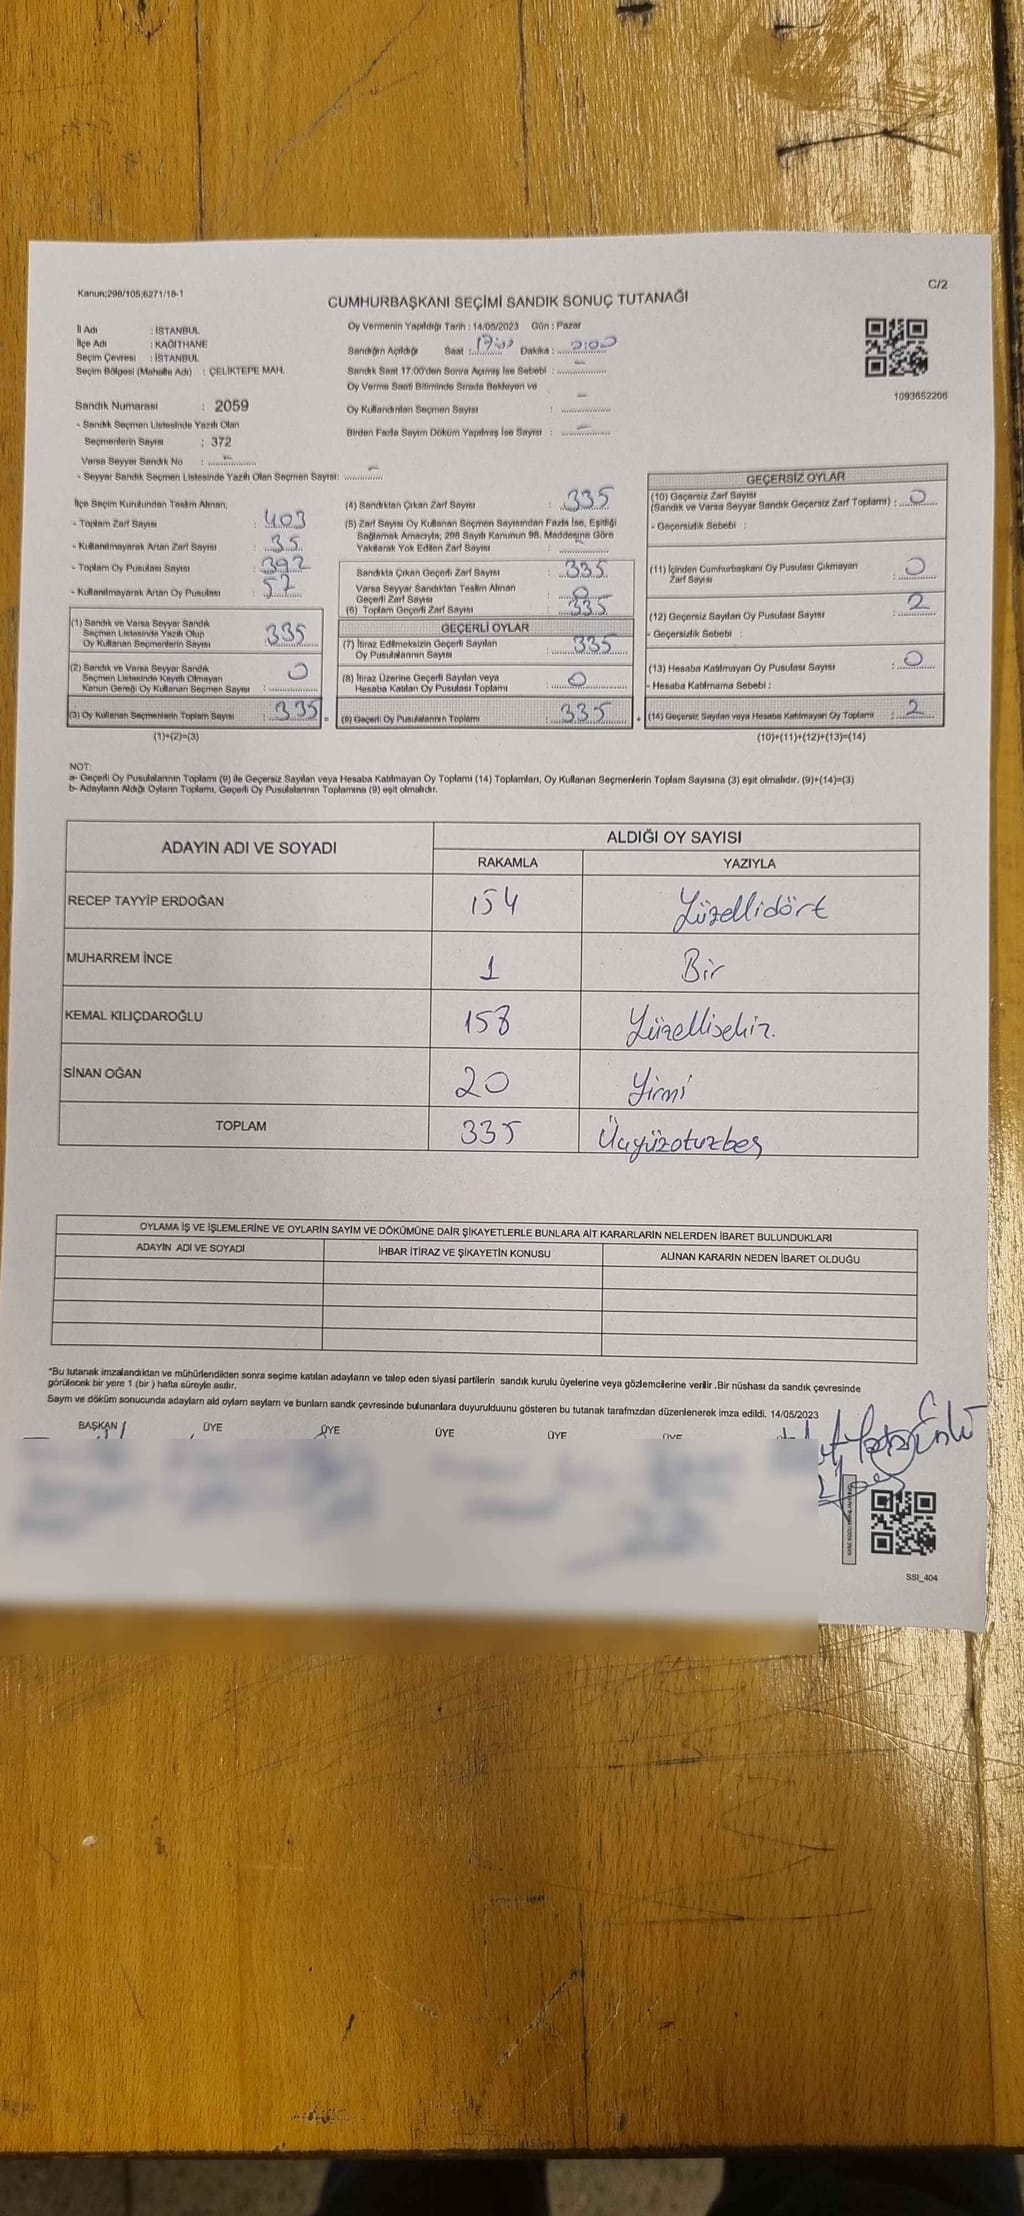 Kanun;298/105;6271/18-1
C/2
CUMHURBAŞKANI SEÇİMİ SANDIK SONUÇ TUTANAĞI
İl Adı : İSTANBUL
İlçe Adı : KAĞITHANE
Seçim Çevresi : İSTANBUL
Seçim Bölgesi (Mahalle Adı) : ÇELİKTEPE MAH.
Oy Vermenin Yapıldığı Tarih : 14/05/2023 Gün : Pazar
Sandığın Açıldığı Saat : 17:00 Dakika :
Sandık Saat 17.00'den Sonra Açılmış İse Sebebi : –
Oy Verme Saati Bitiminde Sırada Bekleyen ve
Oy Kullandırılan Seçmen Sayısı : –
Birden Fazla Sayım Döküm Yapılmış İse Sayısı : –
1093652206
Sandık Numarası : 2059
- Sandık Seçmen Listesinde Yazılı Olan
Seçmenlerin Sayısı : 372
Varsa Seyyar Sandık No : –
- Seyyar Sandık Seçmen Listesinde Yazılı Olan Seçmen Sayısı: –
İlçe Seçim Kurulundan Teslim Alınan;
- Toplam Zarf Sayısı : 403
- Kullanılmayarak Artan Zarf Sayısı : 35
- Toplam Oy Pusulası Sayısı : 392
- Kullanılmayarak Artan Oy Pusulası : 57
(1) Sandık ve Varsa Seyyar Sandık
Seçmen Listesinde Yazılı Olup
Oy Kullanan Seçmenlerin Sayısı : 335
(2) Sandık ve Varsa Seyyar Sandık
Seçmen Listesinde Kayıtlı Olmayan
Kanun Gereği Oy Kullanan Seçmen Sayısı : 0
(3) Oy Kullanan Seçmenlerin Toplam Sayısı : 335
(1)+(2)=(3)
(4) Sandıktan Çıkan Zarf Sayısı : 335
(5) Zarf Sayısı Oy Kullanan Seçmen Sayısından Fazla İse, Eşitliği
Sağlamak Amacıyla; 298 Sayılı Kanunun 98. Maddesine Göre
Yakılarak Yok Edilen Zarf Sayısı : –
Sandıkta Çıkan Geçerli Zarf Sayısı : 335
Varsa Seyyar Sandıktan Teslim Alınan
Geçerli Zarf Sayısı : 0
(6) Toplam Geçerli Zarf Sayısı : 335
GEÇERLİ OYLAR
(7) İtiraz Edilmeksizin Geçerli Sayılan
Oy Pusulalarının Sayısı : 335
(8) İtiraz Üzerine Geçerli Sayılan veya
Hesaba Katılan Oy Pusulası Toplamı : 0
(9) Geçerli Oy Pusulalarının Toplamı : 335
GEÇERSİZ OYLAR
(10) Geçersiz Zarf Sayısı
(Sandık ve Varsa Seyyar Sandık Geçersiz Zarf Toplamı) : 0
- Geçersizlik Sebebi :
(11) İçinden Cumhurbaşkanı Oy Pusulası Çıkmayan
Zarf Sayısı : 0
(12) Geçersiz Sayılan Oy Pusulası Sayısı : 2
- Geçersizlik Sebebi :
(13) Hesaba Katılmayan Oy Pusulası Sayısı : 0
- Hesaba Katılmama Sebebi :
(14) Geçersiz Sayılan veya Hesaba Katılmayan Oy Toplamı : 2
(10)+(11)+(12)+(13)=(14)
NOT:
a- Geçerli Oy Pusulalarının Toplamı (9) ile Geçersiz Sayılan veya Hesaba Katılmayan Oy Toplamı (14) Toplamları, Oy Kullanan Seçmenlerin Toplam Sayısına (3) eşit olmalıdır. (9)+(14)=(3)
b- Adayların Aldığı Oyların Toplamı, Geçerli Oy Pusulalarının Toplamına (9) eşit olmalıdır.
ADAYIN ADI VE SOYADI
ALDIĞI OY SAYISI
RAKAMLA YAZIYLA
RECEP TAYYİP ERDOĞAN 154 Yüzellidört
MUHARREM İNCE 1 Bir
KEMAL KILIÇDAROĞLU 158 Yüzellisekiz.
SİNAN OĞAN 20 Yirmi
TOPLAM 335 Üçyüzotuzbeş
OYLAMA İŞ VE İŞLEMLERİNE VE OYLARIN SAYIM VE DÖKÜMÜNE DAİR ŞİKAYETLERLE BUNLARA AİT KARARLARIN NELERDEN İBARET BULUNDUKLARI
ADAYIN ADI VE SOYADI İHBAR İTİRAZ VE ŞİKAYETİN KONUSU ALINAN KARARIN NEDEN İBARET OLDUĞU
*Bu tutanak imzalandıktan ve mühürlendikten sonra seçime katılan adayların ve talep eden siyasi partilerin sandık kurulu üyelerine veya gözlemcilerine verilir .Bir nüshası da sandık çevresinde
görülecek bir yere 1 (bir ) hafta süreyle asılır.
Sayım ve döküm sonucunda adayların ald oyların sayları ve bunların sandk çevresinde bulunanlara duyurulduunu gösteren bu tutanak tarafmzdan düzenlenerek imza edildi. 14/05/2023
BAŞKAN ÜYE ÜYE ÜYE ÜYE ÜYE
SSI_404